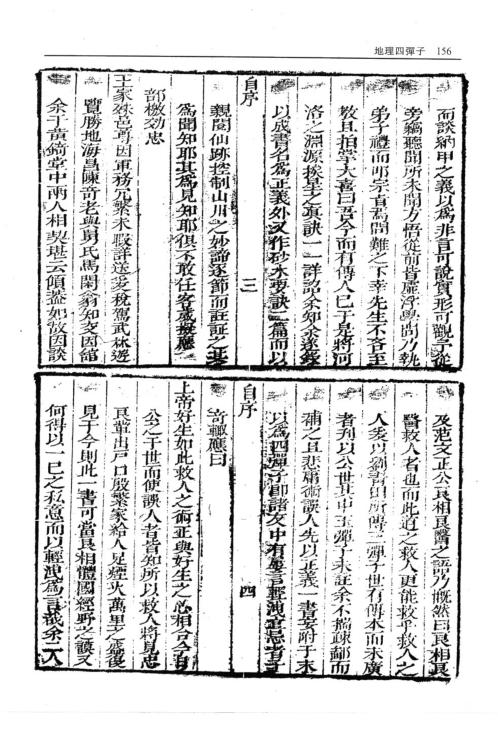 地理四彈子 156
而談納甲之義以爲非言可說實形可觀予從
旁竊聽聞所未聞方悟從前皆虛浮學問乃執
弟子禮而耶宗省焉問難之下幸先生不吝至
教且拍掌大喜曰吾今而有傳人巳于是將河
洛之淵源挨星之眞訣一一詳詔余知余遂錄
以成書名爲正義外又作砂水要訣二篇而以
自序
三
親閱仙跡控制山川之妙論逐節而註証之
爲聞知耶其爲見知耶俱不敢任客歲擬應
部檄効
王家
尊因軍務冗繁未暇詳送爰稅駕武林遊
覽勝地海昌陳奇老與舅氏馬閑翁知交因舘
余于黃錡堂中兩人相契堪云傾蓋如故因談
及范文正公良相良醫之語乃慨然曰良相良
醫救人者也而此道之救人更能救乎救人之
人矣以
所傳
彈子世有傳本而未廣
者刋以公世其中玉彈子未註余不揣疎鄙而
補之且悲庸術誤人先以正義一書妄附于末
以爲四彈子卽諸友中有
言輕洩宜忌者
自序
四
竒輙應曰
上帝好生如此救人之術正與好生之心相合今
公之于世而使誤人者皆知所以救人將見忠
良輩出戸口殷繁家給人足煙火萬里之盛復
見于今則此一書可當良相體國經野之謨又
何得以一巳之私意而以輕洩爲言哉余二人